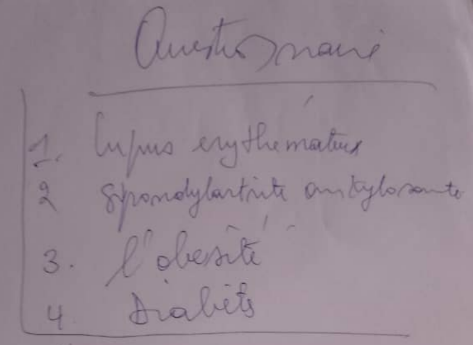 Questionnaire
1. Lupus erythémateux
2 Spondylartrite ankylosante
3. l'obésité
4 Diabète